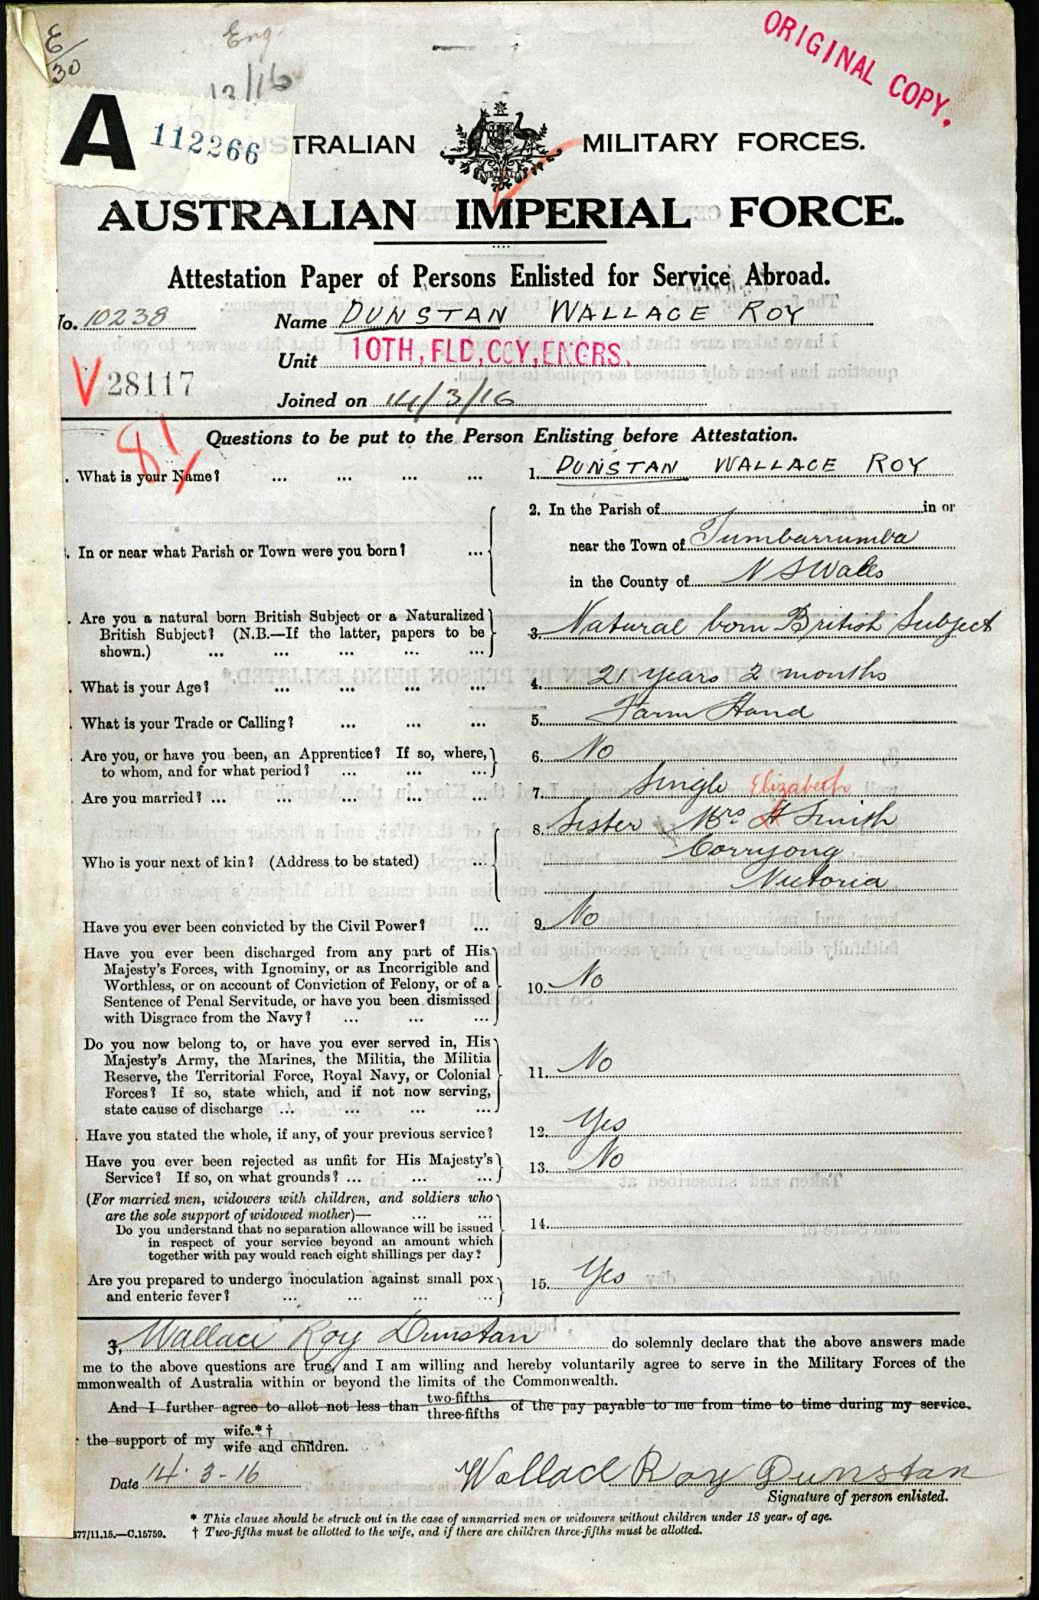 E/30
Eng.
12/16
ORIGINAL COPY.
A 112266
TRALIAN MILITARY FORCES.
AUSTRALIAN IMPERIAL FORCE.
Attestation Paper of Persons Enlisted for Service Abroad.
No. 10238
Name DUNSTAN WALLACE ROY
Unit 10TH, FLD, COY, ENGRS.
V 28117
Joined on 14/3/16
81
Questions to be put to the Person Enlisting before Attestation.
. What is your Name? ... ... ... ... 1. DUNSTAN WALLACE ROY
. In or near what Parish or Town were you born? ... 2. In the Parish of in or
near the Town of Tumbarrumba
in the County of N S Wales
. Are you a natural born British Subject or a Naturalized
British Subject? (N.B.—If the latter, papers to be
shown.) ... ... ... ... 3. Natural born British Subject
. What is your Age? ... ... ... ... 4. 21 years 2 months
. What is your Trade or Calling? ... ... ... 5. Farm Hand
. Are you, or have you been, an Apprentice? If so, where,
to whom, and for what period? ... ... ... 6. No
. Are you married? ... ... ... ... ... 7. Single
Elizabeth
Who is your next of kin? (Address to be stated) ... 8. Sister Mrs A Smith
Corryong
Victoria
Have you ever been convicted by the Civil Power? ... 9. No
Have you ever been discharged from any part of His
Majesty's Forces, with Ignominy, or as Incorrigible and
Worthless, or on account of Conviction of Felony, or of a
Sentence of Penal Servitude, or have you been dismissed
with Disgrace from the Navy? ... ... ... 10. No
Do you now belong to, or have you ever served in, His
Majesty's Army, the Marines, the Militia, the Militia
Reserve, the Territorial Force, Royal Navy, or Colonial
Forces? If so, state which, and if not now serving,
state cause of discharge ... ... ... ... 11. No
. Have you stated the whole, if any, of your previous service? 12. Yes
Have you ever been rejected as unfit for His Majesty's
Service? If so, on what grounds? ... ... ... 13. No
(For married men, widowers with children, and soldiers who
are the sole support of widowed mother)— ... ...
Do you understand that no separation allowance will be issued
in respect of your service beyond an amount which
together with pay would reach eight shillings per day? 14.
Are you prepared to undergo inoculation against small pox
and enteric fever? ... ... ... ... 15. Yes
I, Wallace Roy Dunstan do solemnly declare that the above answers made
me to the above questions are true, and I am willing and hereby voluntarily agree to serve in the Military Forces of the
mmonwealth of Australia within or beyond the limits of the Commonwealth.
And I further agree to allot not less than two-fifths three-fifths of the pay payable to me from time to time during my service,
the support of my wife.*† wife and children.
Date 14.3-16
Wallace Roy Dunstan
Signature of person enlisted.
* This clause should be struck out in the case of unmarried men or widowers without children under 18 years of age.
377/11.15.—C.15759. † Two-fifths must be allotted to the wife, and if there are children three-fifths must be allotted.